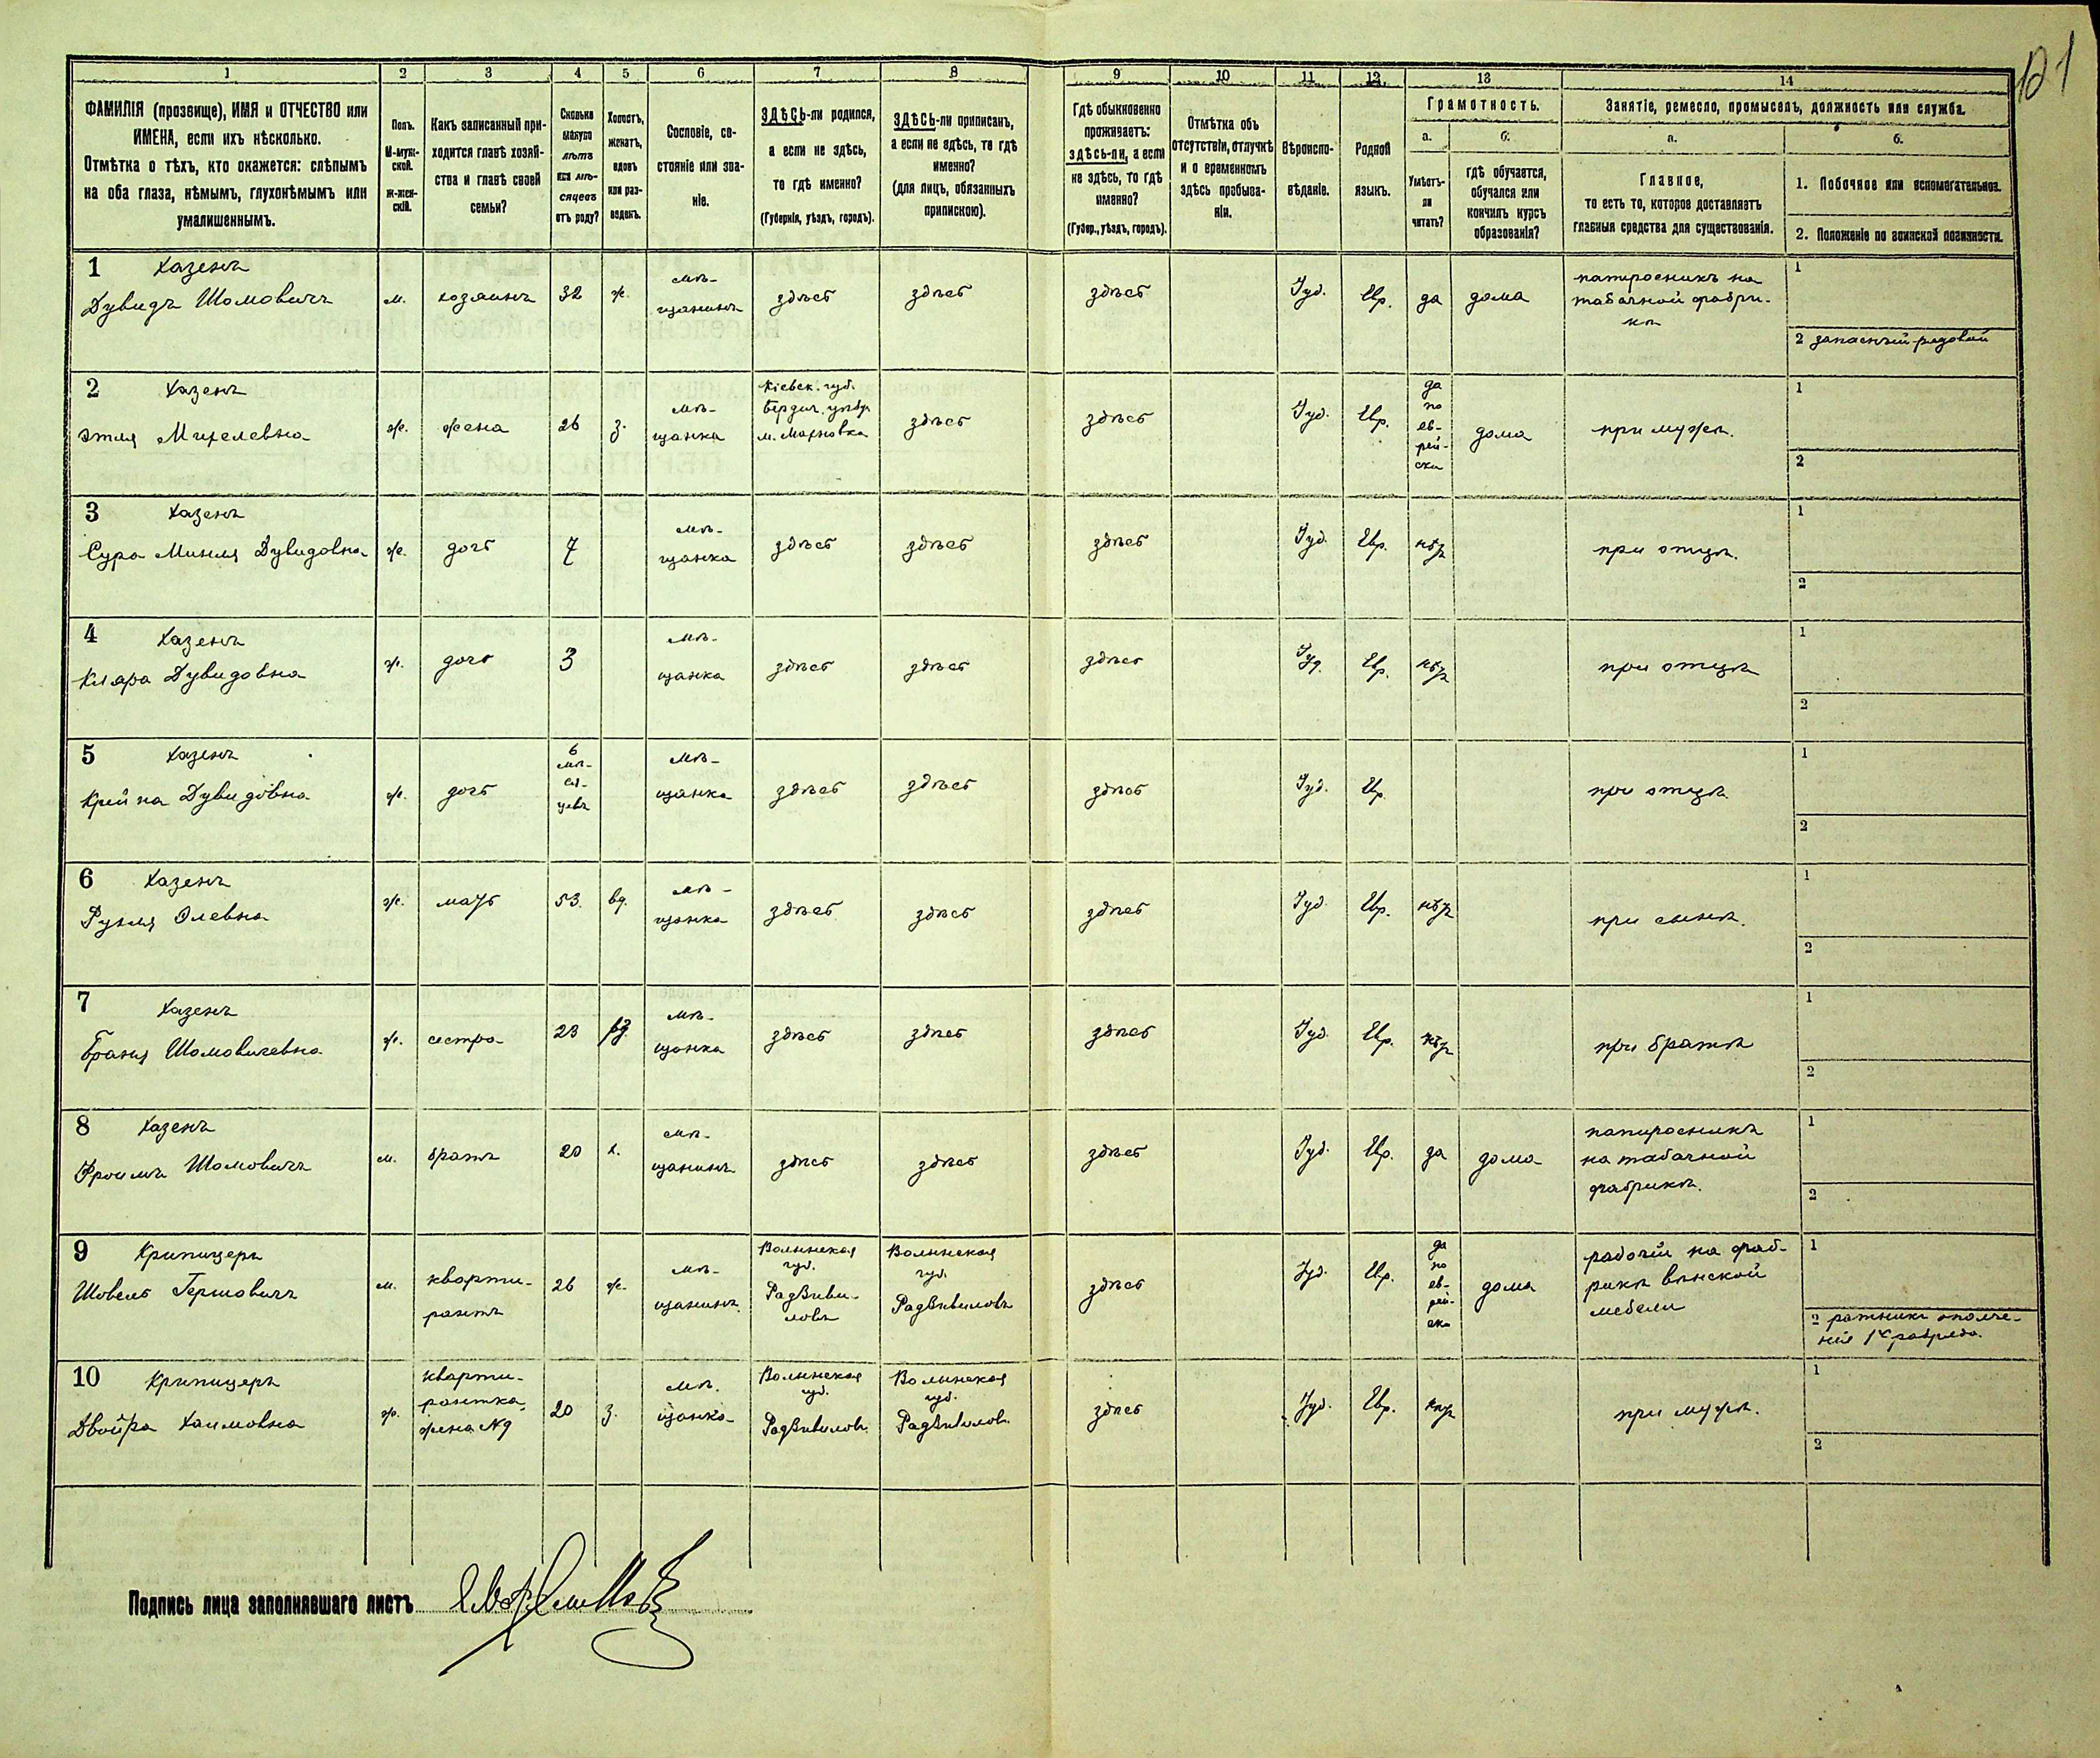 121
1 2 3 4 5 6 7 8 9 10 11 12 13 14
ФАМИЛІЯ (прозвище), ИМЯ и ОТЧЕСТВО или
ИМЕНА, если ихъ нѣсколько.
Отмѣтка о тѣхъ, кто окажется: слѣпымъ
на оба глаза, нѣмымъ, глухонѣмымъ или
умалишеннымъ.
Полъ.
М-муж-
ской.
Ж-жен-
скій.
Какъ записанный при-
ходится главѣ хозяй-
ства и главѣ своей
семьи?
Сколько
минуло
лѣтъ
или мѣ-
сяцевъ
отъ роду?
Холостъ,
женатъ,
вдовъ
или раз-
веденъ.
Сословіе, со-
стояніе или зва-
ніе.
ЗДѢСЬ-ли родился,
а если не здѣсь,
то гдѣ именно?
(Губернія, уѣздъ, городъ).
ЗДѢСЬ-ли приписанъ,
а если не здѣсь, то гдѣ
именно?
(для лицъ, обязанныхъ
припискою).
Гдѣ обыкновенно
проживаетъ:
здѣсь-ли, а если
не здѣсь, то гдѣ
именно?
(Губер., уѣздъ, городъ).
Отмѣтка объ
отсутствіи, отлучкѣ
и о временномъ
здѣсь пребыва-
ніи.
Вѣроиспо-
вѣданіе.
Родной
языкъ.
Грамотность.
а.
Умѣетъ-
ли
читать?
б.
гдѣ обучается,
обучался или
кончилъ курсъ
образованія?
Занятіе, ремесло, промыселъ, должность или служба.
а.
Главное,
то есть то, которое доставляетъ
главныя средства для существованія.
б.
1. Побочное или вспомогательное.
2. Положеніе по воинской повинности.
1 Хазенъ
Дувидъ Шомовичъ
м.
хозяинъ
32
ж.
мѣ-
щанинъ
здѣсь
здѣсь
здѣсь
Іуд.
Евр.
да
дома
папиросникъ на
табачной фабри-
кѣ
1
2 запасный рядовой
2 Хазенъ
Этля Михелевна
ж.
жена
26
з.
мѣ-
щанка
Кіевск. губ.
Бердич. уѣзд.
м. Махновка
здѣсь
здѣсь
Іуд.
Евр.
да
по
ев-
рей-
ски
дома
при мужѣ.
1
2
3 Хазенъ
Сура Миндля Дувидовна
ж.
дочь
7
мѣ-
щанка
здѣсь
здѣсь
здѣсь
Іуд.
Евр.
нѣтъ
при отцѣ.
1
2
4 Хазенъ
Клара Дувидовна
ж.
дочь
3
мѣ-
щанка
здѣсь
здѣсь
здѣсь
Іуд.
Евр.
нѣтъ
при отцѣ
1
2
5 Хазенъ
Крейна Дувидовна
ж.
дочь
6
мѣ-
ся-
цевъ
мѣ-
щанка
здѣсь
здѣсь
здѣсь
Іуд.
Евр.
при отцѣ
1
2
6 Хазенъ
Рухля
ж.
мать
53.
вд.
мѣ-
щанка
здѣсь
здѣсь
здѣсь
Іуд.
Евр.
нѣтъ
при сынѣ.
1
2
7 Хазенъ
Браня Шомовичевна
ж.
сестра
23
мѣ-
щанка
здѣсь
здѣсь
здѣсь
Іуд.
Евр.
нѣтъ
при братѣ
1
2
8 Хазенъ
Фроимъ Шомовичъ
м.
братъ
20
х.
мѣ-
щанинъ
здѣсь
здѣсь
здѣсь
Іуд.
Евр.
да
дома
папиросникъ
на табачной
фабрикѣ.
1
2
9 Крипицеръ
Шовель Гершовичъ
м.
кварти-
рантъ
26
ж.
мѣ-
щанинъ
Волынская
губ.
Радзиви-
ловъ
Волынская
губ.
Радзивиловъ
здѣсь
Іуд.
Евр.
да
по
ев-
рей-
ски
дома
рабочій на фаб-
рикѣ вѣнской
мебели
1
2 ратникъ ополче-
нія 1го разряда.
10 Крипицеръ
Двойра Хаимовна
ж.
кварти-
рантка,
жена №9
20
з.
мѣ-
щанка
Волынская
губ.
Радзивиловъ
Волынская
губ.
Радзивиловъ
здѣсь
Іуд.
Евр.
нѣтъ
при мужѣ.
1
2
Подпись лица заполнявшаго листъ